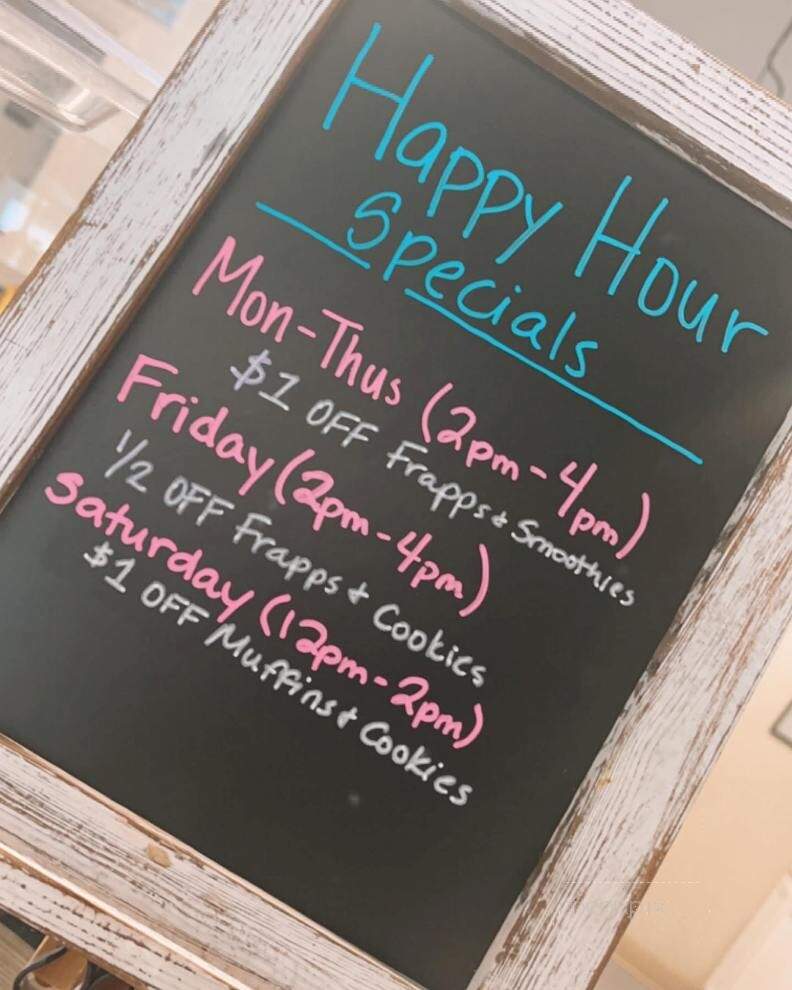 Happy Hour
Specials
Mon-Thus (2pm-4pm)
$1 OFF Frapps & Smoothies
Friday (2pm-4pm)
1/2 OFF Frapps & Cookies
Saturday (12pm-2pm)
$1 OFF Muffins & Cookies